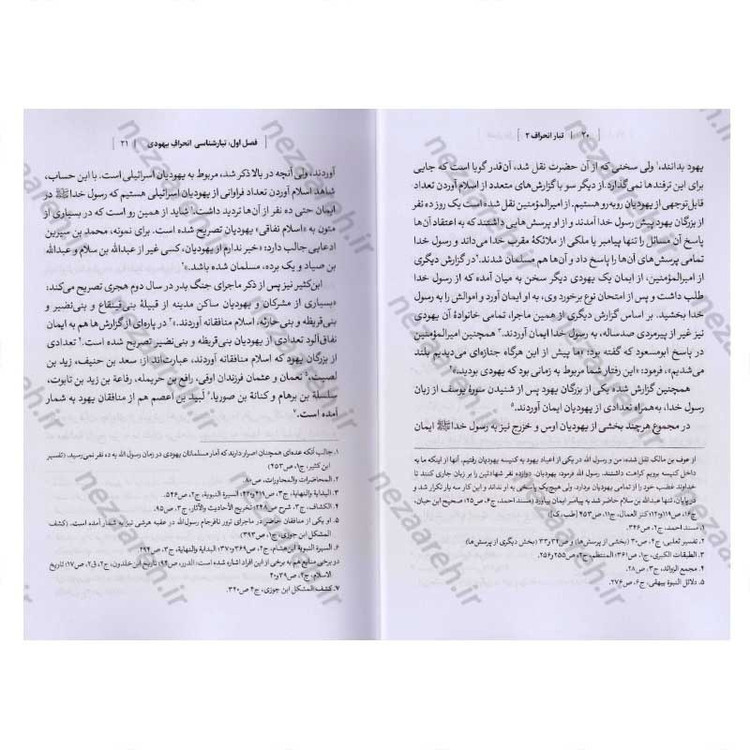 ۲۰ | تبار انحراف ۲
یهود بدانند،¹ ولی سخنی که از آن حضرت نقل شد، آن‌قدر گویا است که جایی
برای این ترفندها نمی‌گذارد. از دیگر سو با گزارش‌های متعدد از اسلام آوردن تعداد
قابل‌توجهی از یهودیان روبه‌رو هستیم. از امیرالمؤمنین نقل شده است یک روز ده نفر
از بزرگان یهود پیش رسول خدا آمدند و از او پرسش‌هایی داشتند که به اعتقاد آن‌ها
پاسخ آن مسائل را تنها پیامبر یا ملکی از ملائکهٔ مقرب خدا می‌داند و رسول خدا
تمامی پرسش‌های آن‌ها را پاسخ داد و آن‌ها هم مسلمان شدند.² در گزارش دیگری
از امیرالمؤمنین، از ایمان یک یهودی دیگر سخن به میان آمده که از رسول خدا
طلب داشت و پس از امتحان نوع برخورد وی، به او ایمان آورد و اموالش را به رسول
خدا بخشید. بر اساس گزارش دیگری از همین ماجرا، تمامی خانوادهٔ آن یهودی
نیز غیر از پیرمردی صدساله، به رسول خدا ایمان آوردند.³ همچنین امیرالمؤمنین
در پاسخ ابومسعود که گفته بود: «ما پیش از این هرگاه جنازه‌ای می‌دیدیم بلند
می‌شدیم»، فرمود: «این رفتار شما مربوط به زمانی بود که یهودی بودید.»⁴
همچنین گزارش شده یکی از بزرگان یهود پس از شنیدن سورهٔ یوسف از زبان
رسول خدا، به‌همراه تعدادی از یهودیان ایمان آوردند.⁵
در مجموع هرچند بخشی از یهودیان اوس و خزرج نیز به رسول خدا ﷺ ایمان
از عوف بن مالک نقل شده: من و رسول الله در یکی از اعیاد یهود به کنیسه یهودیان رفتیم. آنها از اینکه ما به
داخل کنیسه برویم کراهت داشتند. رسول الله فرمود: یهودیان، دوازده نفر شهادتین را بر زبان جاری کنند تا
خداوند غضب خود را از تمامی یهودیان بردارد. ولی هیچ‌یک پاسخی به او نداند و این کار سه بار تکرار شد و
درپایان، تنها عبدالله بن سلام حاضر شد به پیامبر ایمان بیاورد (مسند احمد، ج۶، ص۲۵؛ صحیح ابن حبان،
ج۱۶، ص۱۱۹و۱۲۰؛ کنز العمال، ج۱۱، ص۴۵۳ [طب، ک])
۱. مسند احمد، ج۲، ص۳۴۶.
۲. تفسیر ثعلبی، ج۴، ص۳۰ (بخشی از پرسش‌ها) و ص۳۲و۳۳ (بخش دیگری از پرسش‌ها)
۳. الطبقات الکبری، ج۱، ص۳۶۱؛ المنتظم، ج۲، ص۲۵۵و۲۵۶.
۴. مجمع الزوائد، ج۳، ص۲۸.
۵. دلائل النبوة بیهقی، ج۶، ص۲۷۶.
فصل اول: تبارشناسی انحراف یهودی | ۲۱
آوردند، ولی آنچه در بالا ذکر شد، مربوط به یهودیان اسرائیلی است. با این حساب،
شاهد اسلام آوردن تعداد فراوانی از یهودیان اسرائیلی هستیم که رسول خدا ﷺ در
ایمان حتی ده نفر از آن‌ها تردید داشت.¹ شاید از همین رو است که در بسیاری از
متون به «اسلام نفاقی» یهودیان تصریح شده است. برای نمونه، محمد بن سیرین
ادعایی جالب دارد: «خبر ندارم از یهودیان، کسی غیر از عبدالله بن سلام و عبدالله
بن صیاد و یک برده، مسلمان شده باشد.»²
ابن‌کثیر نیز پس از ذکر ماجرای جنگ بدر در سال دوم هجری تصریح می‌کند،
«بسیاری از مشرکان و یهودیان ساکن مدینه از قبیلهٔ بنی‌قینقاع و بنی‌نضیر و
بنی‌قریظه و بنی حارثه، اسلام منافقانه آوردند.»³ در پاره‌ای از گزارش‌ها هم به ایمان
نفاق‌آلود تعدادی از یهودیان بنی‌قریظه و بنی‌نضیر تصریح شده است.⁴ تعدادی از
از بزرگان یهود که اسلام منافقانه آوردند، عبارت‌اند از: سعد بن حنیف، زید بن
لصیت،⁵ نعمان و عثمان فرزندان اوفی، رافع بن حریمله، رفاعة بن زید بن تابوت،
سلسلة بن برهام و کنانة بن صوریا.⁶ لَبید بن اعصم هم از منافقان یهود به شمار
آمده است.⁷
۱. جالب آنکه عده‌ای همچنان اصرار دارند که آمار مسلمانان یهودی در زمان رسول الله به ده نفر نمی‌رسید. (تفسیر
ابن کثیر، ج۱، ص۲۵۳)
۲. المحاضرات والمحاورات، ص۸۰.
۳. البدایة والنهایة، ج۳، ص۴۱۹و۴۲۰؛ السیرة النبویة، ج۲، ص۵۴۶.
۴. الکشاف، ج۳، شرح ص۲۴۸؛ تخریج الأحادیث والآثار، ج۳، ص۹۵.
۵. او یکی از منافقان حاضر در ماجرای ترور نافرجام رسول‌الله در عقبه هرشی نیز به شمار آمده است. (کشف
المشکل ابن جوزی، ج۱، ص۳۹۳)
۶. السیرة النبویة ابن‌هشام، ج۲، ص۳۶۹و۳۷۰؛ البدایة والنهایة، ج۳، ص۲۹۴.
در برخی منابع هم به برخی از این افراد اشاره شده است: الدرر، ص۹۴؛ تاریخ ابن خلدون، ج۲، ق۲، ص۱۷؛ تاریخ
الاسلام، ج۲، ص۳۹و۴۰.
۷. کشف المشکل ابن جوزی، ج۴، ص۳۴۰.
nezaareh.ir